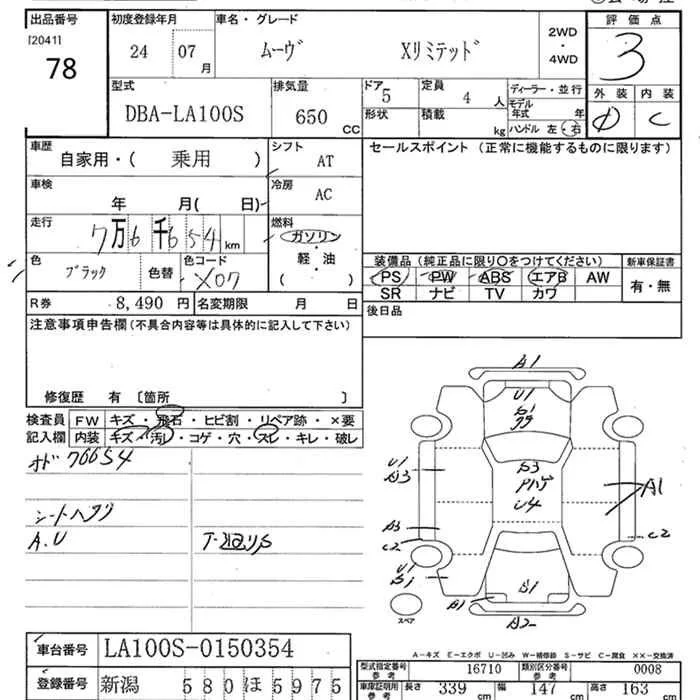 出品番号 初度登録年月 車名・グレード 評価点
[2041]
78
24 07月 ムーヴ Xリミテッド 2WD・4WD 3
型式 排気量 ドア 定員 ディーラー・並行 外装 内装
DBA-LA100S 650 CC 5 4人 モデル年式 年 C
形状 積載 kg ハンドル 左・右
車歴 シフト セールスポイント (正常に機能するものに限ります)
自家用・( 乗用 ) AT
車検 冷房
年 月( 日) AC
走行 燃料
7万6千654km ガソリン・軽油
( )
色 色コード
ブラック 色替 X07
装備品 (純正品に限り〇をつけてください) 新車保証書
PS PW ABS エアB AW 有・無
SR ナビ TV カワ
R券 8,490円 名変期限 月 日
後日品
注意事項申告欄 (不具合内容等は具体的に記入して下さい)
修復歴 有 〔箇所 〕
検査員記入欄
FW キズ・飛石・ヒビ割・リペア跡・×要
内装 キズ・汚れ・コゲ・穴・スレ・キレ・破レ
76654
A.U
A1
U1
A1
U4
U1
A1
C2
C2
U1
A1
A2
スペア
A-キズ E-エクボ U-凹み W-補修跡 S-サビ C-腐食 ××-交換済
車台番号 LA100S-0150354
登録番号 新潟 580ほ5975
型式指定番号参考 16710 類別区分番号参考 0008
車庫証明用参考 長さ 339cm 幅 147cm 高さ 163cm